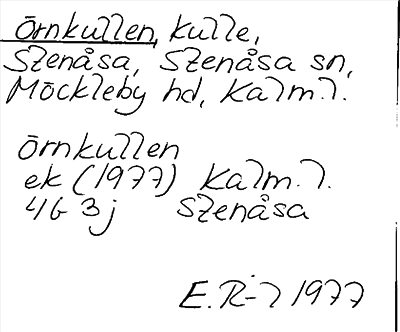 Örnkullen, kulle,
Stenåsa, Stenåsa sn,
Möckleby hd, Kalm. l.
Örnkullen
ek (1977) Kalm. l.
4G 3j Stenåsa
E. R-l 1977